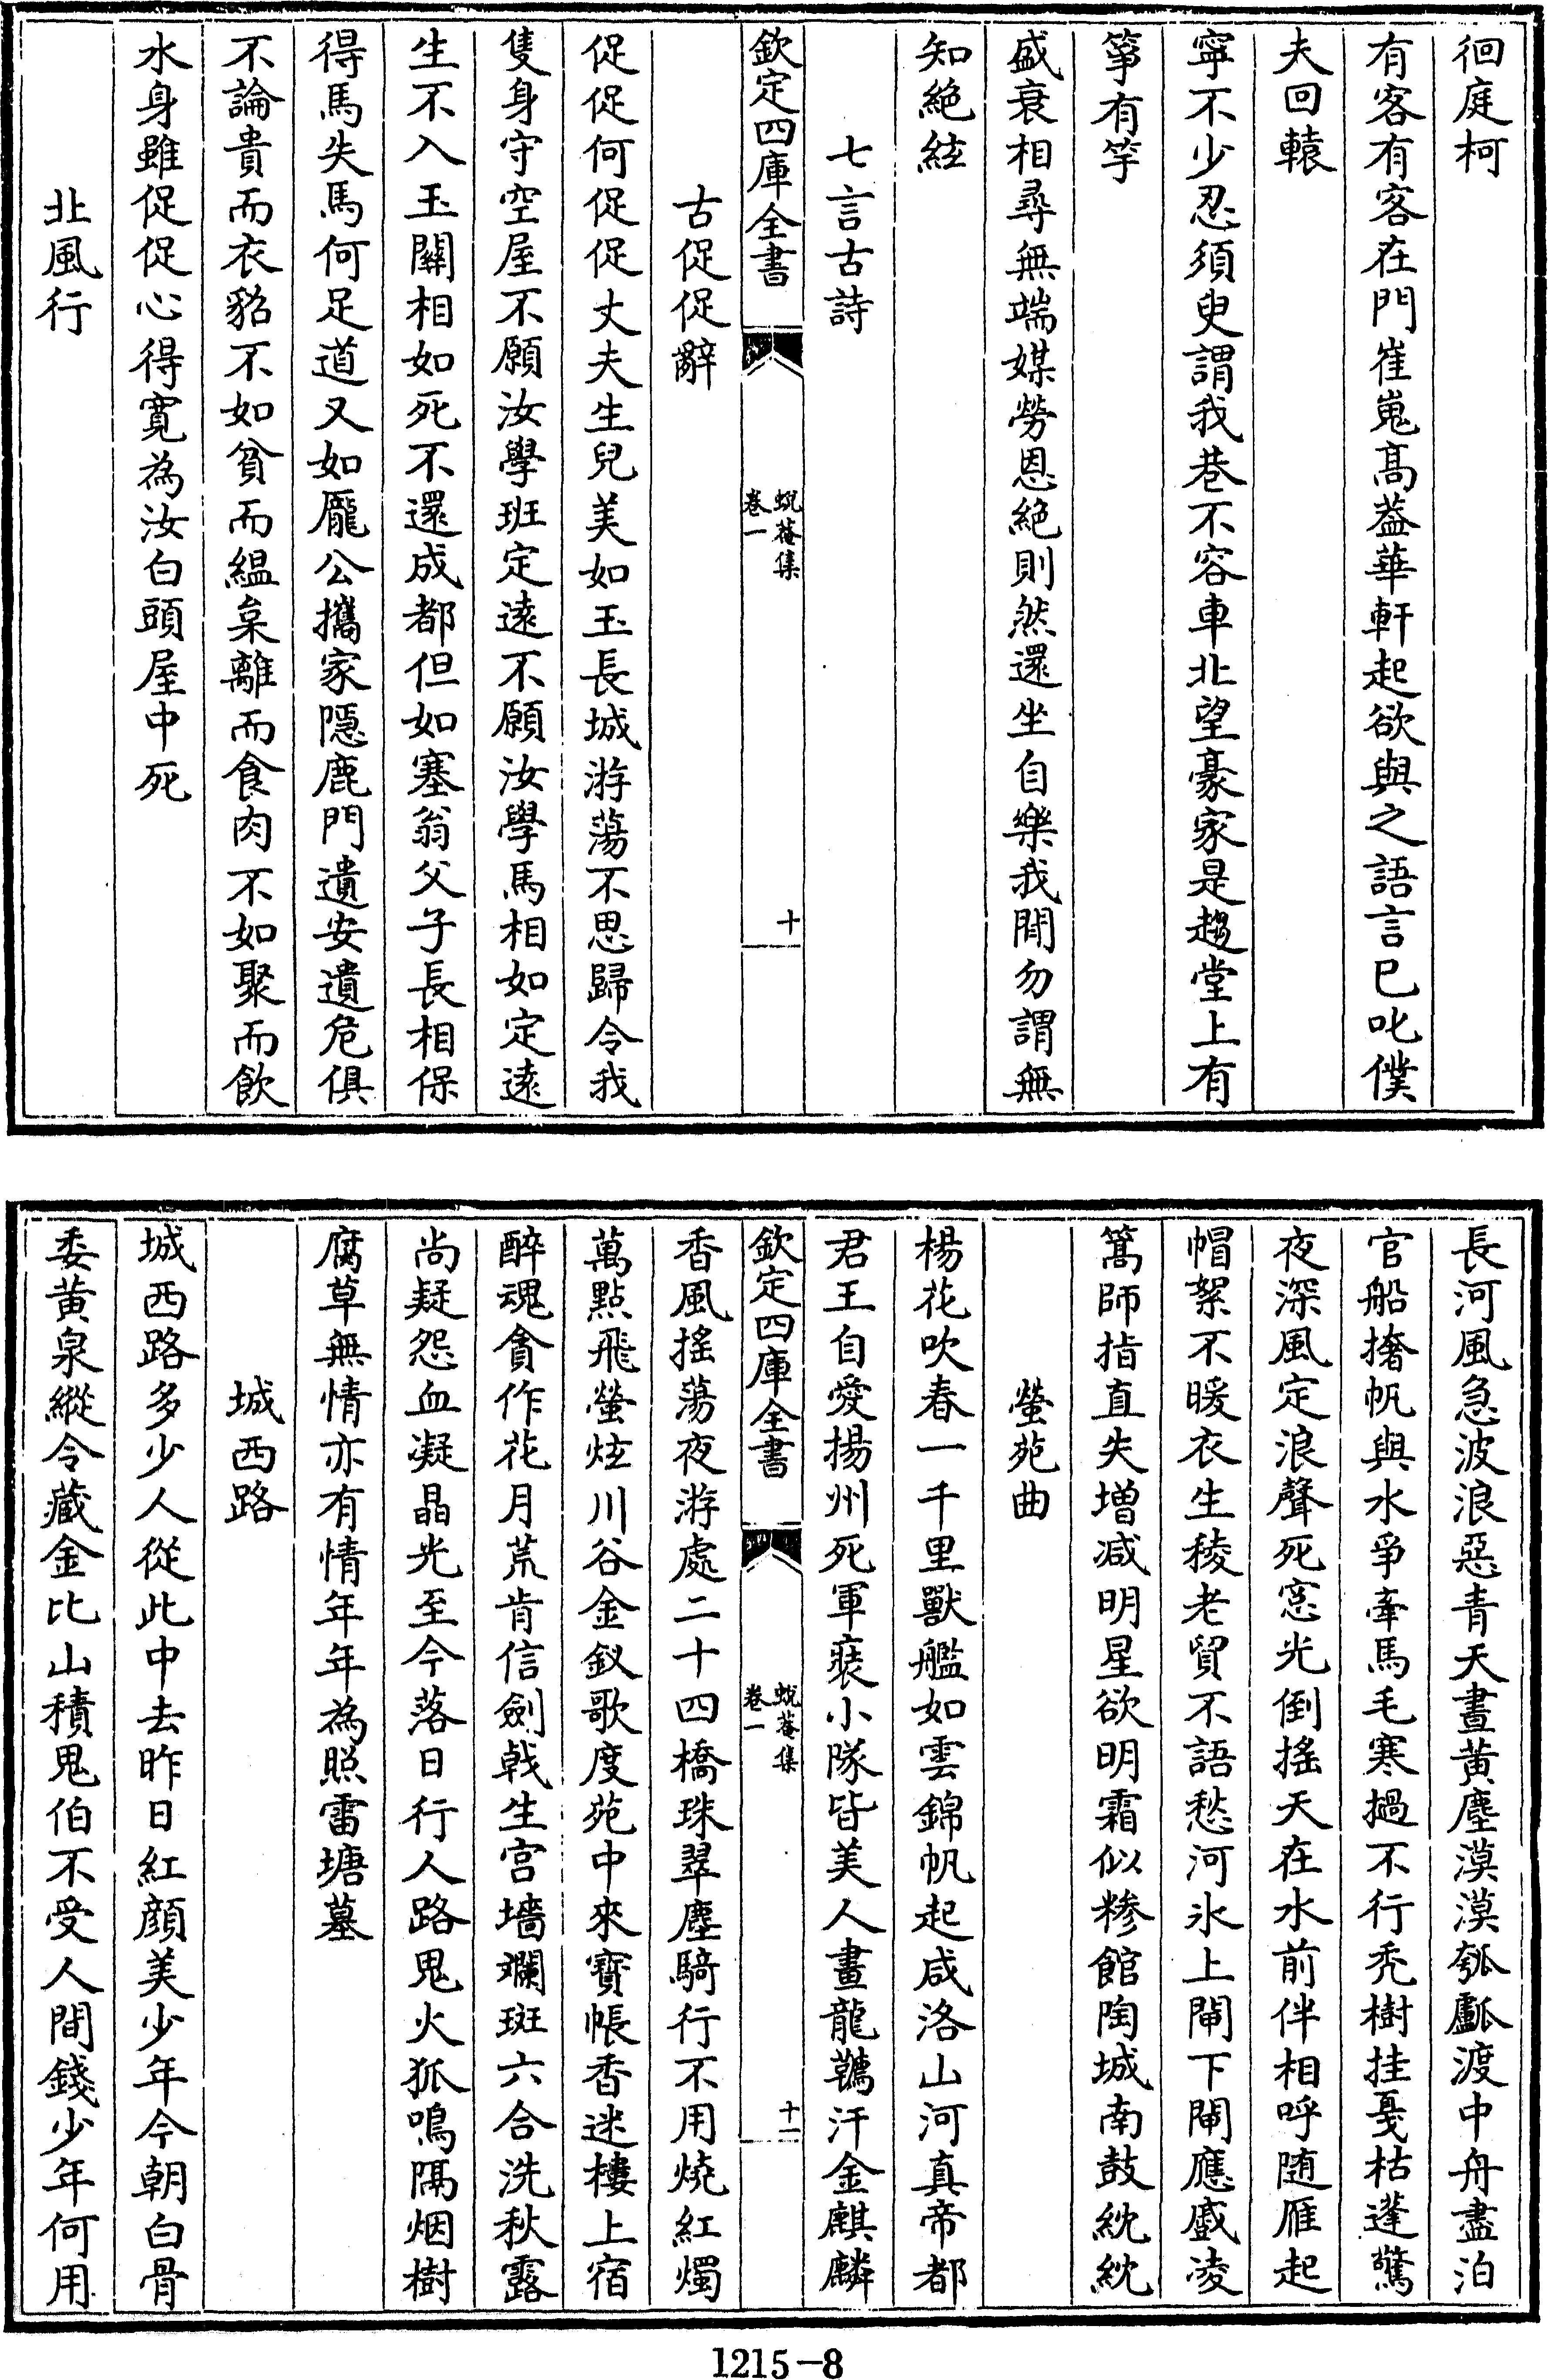 徊庭柯
有客有客在門崔嵬髙葢華軒起欲與之語言已叱僕
夫回轅
寜不少忍須臾謂我巷不容車北望豪家是趨堂上有
筝有竽
盛衰相尋無端媒勞恩絶則然還坐自樂我聞勿謂無
知絶絃
七言古詩
欽定四庫全書
蛻菴集
卷一
十
古促促辭
促促何促促丈夫生兒美如玉長城游蕩不思歸令我
隻身守空屋不願汝學班定逺不願汝學馬相如定逺
生不入玉關相如死不還成都但如塞翁父子長相保
得馬失馬何足道又如龎公攜家隠鹿門遺安遺危俱
不論貴而衣貂不如貧而緼枲離而食肉不如聚而飲
水身雖促促心得寛為汝白頭屋中死
北風行
長河風急波浪惡青天晝黄塵漠漠瓠㼖渡中舟盡泊
官船撦帆與水爭牽馬毛寒撾不行秃樹挂戞枯蓬驚
夜深風定浪聲死窓光倒揺天在水前伴相呼随雁起
帽絮不暖衣生稜老貿不語愁河氷上閘下閘應盛凌
篙師指直失増减明星欲明霜似糝館陶城南鼓紞紞
螢苑曲
楊花吹春一千里獸艦如雲錦帆起咸洛山河真帝都
君王自愛揚州死軍裝小隊皆美人畫龍韉汗金麒麟
香風揺蕩夜游處二十四橋珠翠塵騎行不用燒紅燭
萬點飛螢炫川谷金釵歌度苑中來寳帳香迷樓上宿
醉魂貪作花月荒肯信劍戟生宫墻斕斑六合洗秋露
尚疑怨血凝晶光至今落日行人路鬼火狐鳴隔烟樹
腐草無情亦有情年年為照雷塘墓
欽定四庫全書
蛻菴集
卷一
十一
城西路
城西路多少人從此中去昨日紅顔美少年今朝白骨
委黄泉縱令藏金比山積鬼伯不受人間錢少年何用
1215-8